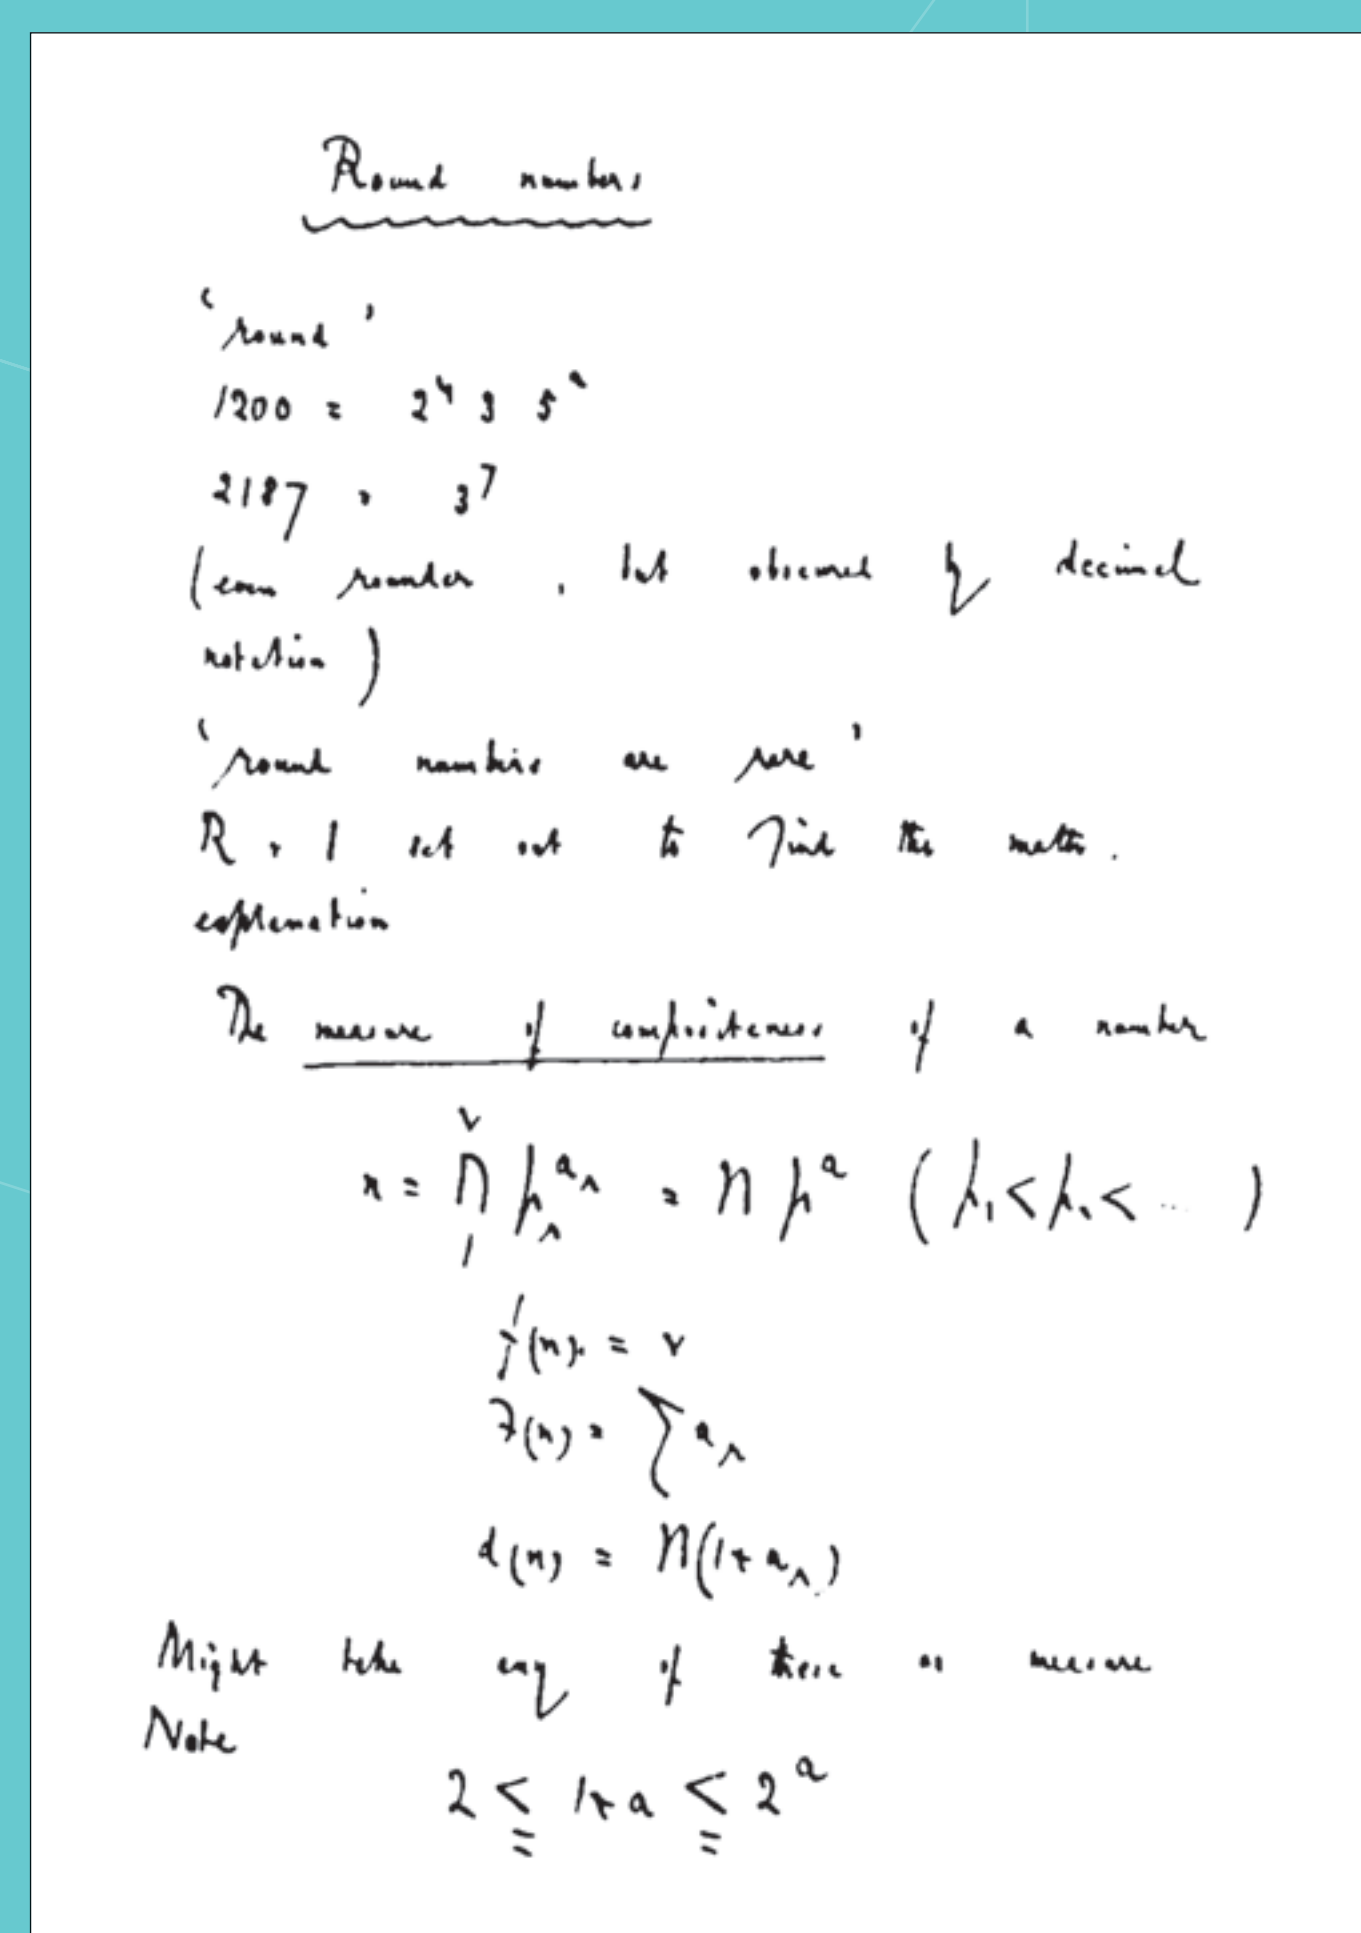 Round numbers
'round'
1200 = 2⁴ 3 5²
2187 = 3⁷
(even rounder, but obscured by decimal
notation)
'round numbers are rare'
R + I set out to find the math.
explanation
The measure of compositeness of a number
n = ∏₁^ν p_r^{a_r} = ∏ p^a (p₁ < p₂ < ... )
f(n) = ν
F(n) = ∑ a_r
d(n) = ∏(1+a_r)
Might take any of these as measure
Note
2 ≦ 1+a ≦ 2^a